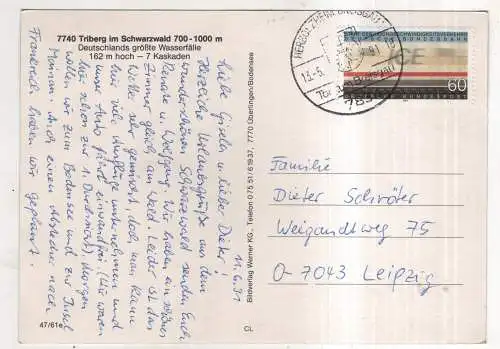 7740 Triberg im Schwarzwald 700-1000 m
Deutschlands größte Wasserfälle
162 m hoch – 7 Kaskaden
11.6.91
Liebe Gisela und lieber Dieter!
Herzliche Urlaubsgrüße aus dem
wunderschönen Schwarzwald senden Euch
Renate u. Wolfgang. Wir haben ein schönes
Zimmer gleich am Wald. Leider ist das
Wetter sehr gemischt, doch man kann
hier viel Ausflüge unternehmen und
unser Auto fährt einwandfrei. (Wir waren
hier schon zur 1. Durchsicht). Morgen
wollen wir zum Bodensee und zur Insel
Mainau. Auch einen Abstecher nach
Frankreich haben wir geplant.
47/61e
CL
Bildverlag Werner KG., Telefon 0 75 51 / 6 19 37, 7770 Überlingen/Bodensee
DEUTSCHE BUNDESPOST
60
Familie
Dieter Schröter
Weigandtweg 75
O-7043 Leipzig